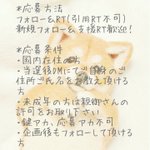 *応募方法
フォロー&RT(引用RT不可)
新規フォロー&支援RT歓迎!
*応募条件
・国内在住の方
・当選後DMにてご自身のご
住所ご氏名をお教え頂ける
方
・未成年の方は親御さんの
許可をお取り下さい
・鍵アカ、応募アカ不可
・企画後もフォローして頂ける
方